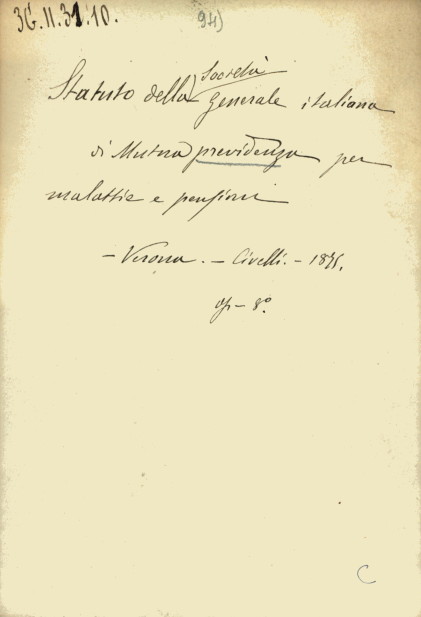 36.II.31.10.
94)
Società
Statuto della generale italiana
di Mutua previdenza per
malattie e pensioni
- Verona. - Civelli. - 1875.
op - 8°.
C